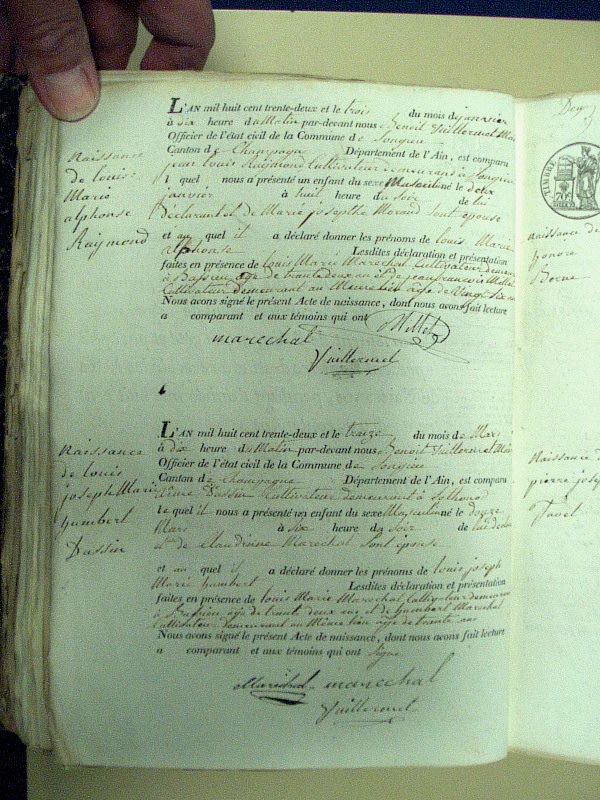 L'AN mil huit cent trente-deux et le trois du mois de janvier
à dix heure du Matin par-devant nous Benoit Vuillermet Maire
Officier de l'état civil de la Commune de Songieu
Canton de Champagne Département de l'Ain, est comparu
louis Raymond Cultivateur demeurant à Songieu
lequel nous a présenté un enfant du sexe Masculin né le deux
janvier à huit heure du soir de lui
déclarant et de Marie josephte Moraud sont épouse
et au quel il a déclaré donner les prénoms de louis Marie
alphonse Lesdites déclaration et présentation
faites en présence de louis Marie Marechal Cultivateur demeurant
à age de trante deux an et de jean francois Millet
Cultivateur demeurant au Meme lieu age de Vingt six an
Nous avons signé le présent Acte de naissance, dont nous avons fait lecture
a comparant et aux témoins qui ont
Millet
marechal
Vuillermet
Naissance
de louis
Marie
alphonse
Raymond
L'AN mil huit cent trente-deux et le traize du mois de Mars
à dix heure du Matin par-devant nous Benoit Vuillermet Maire
Officier de l'état civil de la Commune de Songieu
Canton de Champagne Département de l'Ain, est comparu
Dassin Cultivateur demeurant à Sothonod
lequel il nous a présenté un enfant du sexe Masculin né le douze
Mars à six heure du soir de lui
de Claudrine Marechal sont épouse
et au quel il a déclaré donner les prénoms de louis joseph
Marie humbert Lesdites déclaration et présentation
faites en présence de louis Marie Marechal Cultivateur demeurant
à age de trante deux ans et de humbert Marechal
Cultivateur demeurant au Même lieu age de trante an
Nous avons signé le présent Acte de naissance, dont nous avons fait lecture
a comparant et aux témoins qui ont signe
Marechal marechal
Vuillermet
Naissance
de louis
joseph Marie
humbert
Dassin
TIMBRE
Naissance de
honore
Borne
Naissance de
pierre josep